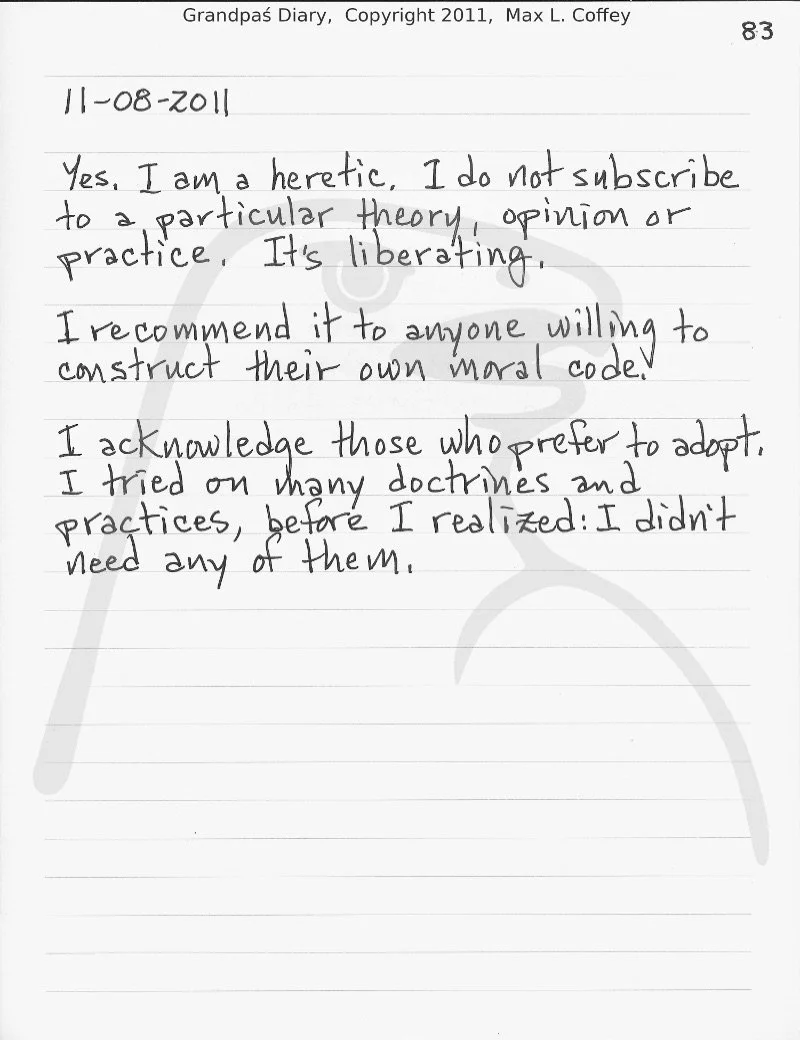 Grandpaś Diary, Copyright 2011, Max L. Coffey
83
11-08-2011
Yes. I am a heretic. I do not subscribe
to a particular theory, opinion or
practice. It's liberating.
I recommend it to anyone willing to
construct their own moral code.
I acknowledge those who prefer to adopt.
I tried on many doctrines and
practices, before I realized: I didn't
need any of them.